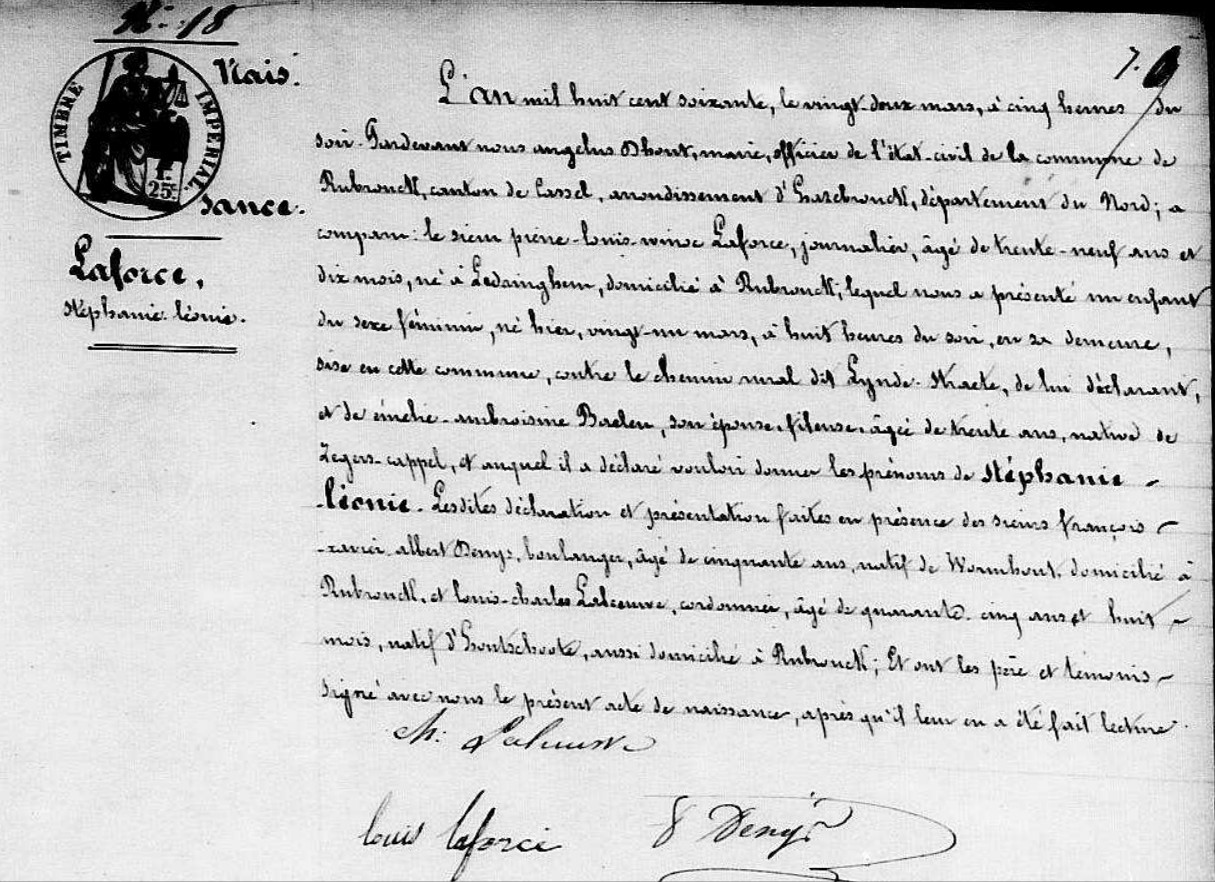 N.° 18
7. 9
TIMBRE IMPERIAL
25c.
Nais.
sance.
Laforce,
stéphanie-léonie.
L'an mil huit cent soixante, le vingt-deux mars, à cinq heures du
soir. Pardevant nous angelus Dhont, maire, officier de l'état-civil de la commune de
Rubrouck, canton de Cassel, arrondissement d'hazebrouck, département du Nord; a
comparu: le sieur pierre-louis-winoc Laforce, journalier, âgé de trente-neuf ans et
dix mois, né à Ledringhem, domicilié à Rubrouck; lequel nous a présenté un enfant
du sexe féminin, né hier, vingt-un mars, à huit heures du soir, en sa demeure,
sise en cette commune, contre le chemin rural dit Lynde-straete, de lui déclarant,
et de émélie-ambroisine Baelen, son épouse, fileuse, âgée de trente ans, native de
Zegers-cappel, et auquel il a déclaré vouloir donner les prénoms de stéphanie-
-léonie. Lesdites déclaration et présentation faites en présence des sieurs françois-
-xavier-albert Denys, boulanger, âgé de cinquante ans, natif de Wormhout, domicilié à
Rubrouck, et louis-charles cordonnier, âgé de quarante-cinq ans et huit-
mois, natif d'hontschoote, aussi domicilié à Rubrouck; Et ont les père et témoins-
signé avec nous le présent acte de naissance, après qu'il leur en a été fait lecture.
Ch.
louis laforce
Denys